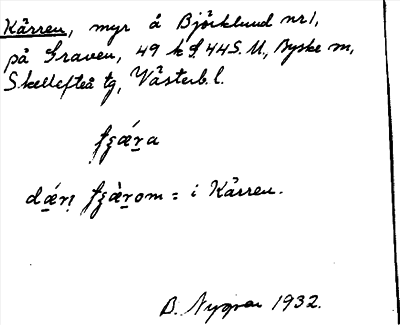 Kärren, myr å Björklund nr 1,
på Graven, 49 k S. 44 S. U, Byske sn,
Skellefteå tg, Västerb. l.
i Kärren.
B. Nygren 1932.